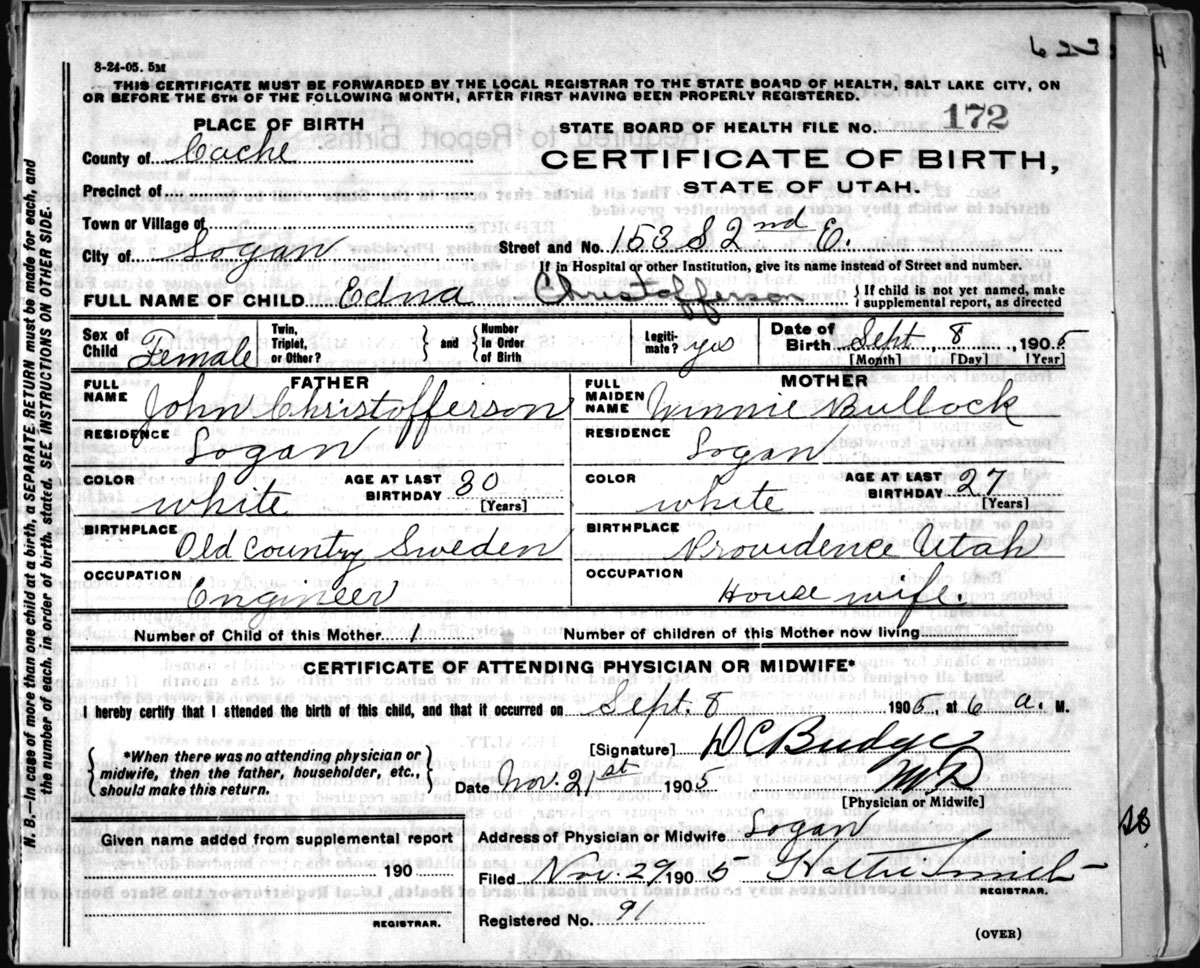 8-24-05. 5M
THIS CERTIFICATE MUST BE FORWARDED BY THE LOCAL REGISTRAR TO THE STATE BOARD OF HEALTH, SALT LAKE CITY, ON
OR BEFORE THE 5TH OF THE FOLLOWING MONTH, AFTER FIRST HAVING BEEN PROPERLY REGISTERED.
PLACE OF BIRTH
STATE BOARD OF HEALTH FILE NO. 172
County of Cache
CERTIFICATE OF BIRTH,
Precinct of
STATE OF UTAH.
Town or Village of
City of Logan
Street and No. 153 S 2nd E.
If in Hospital or other Institution, give its name instead of Street and number.
FULL NAME OF CHILD Edna Christofferson { If child is not yet named, make
supplemental report, as directed
Sex of Child Female
Twin, Triplet, or Other? } and { Number In Order of Birth
Legiti-mate? yes
Date of Birth Sept 8, 1905
[Month] [Day] [Year]
FATHER
FULL NAME John Christofferson
RESIDENCE Logan
COLOR white
AGE AT LAST BIRTHDAY 30 [Years]
BIRTHPLACE Old Country Sweden
OCCUPATION Engineer
MOTHER
FULL MAIDEN NAME Winnie Bullock
RESIDENCE Logan
COLOR white
AGE AT LAST BIRTHDAY 27 [Years]
BIRTHPLACE Providence Utah
OCCUPATION House wife
Number of Child of this Mother 1 Number of children of this Mother now living
CERTIFICATE OF ATTENDING PHYSICIAN OR MIDWIFE*
I hereby certify that I attended the birth of this child, and that it occurred on Sept. 8 1905, at 6 a. M.
{ *When there was no attending physician or
midwife, then the father, householder, etc.,
should make this return. }
[Signature] D C Budge
Date Nov. 21st 1905
[Physician or Midwife]
Given name added from supplemental report
190
REGISTRAR.
Address of Physician or Midwife Logan
Filed Nov. 29 1905 Hattie Smith
REGISTRAR.
Registered No. 91
(OVER)
N. B.—In case of more than one child at a birth, a SEPARATE RETURN must be made for each, and
the number of each, in order of birth, stated. SEE INSTRUCTIONS ON OTHER SIDE.